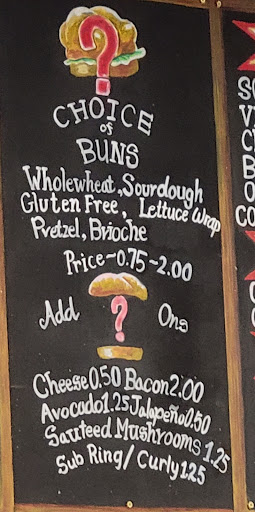 ?
CHOICE
of
BUNS
Wholewheat, Sourdough
Gluten Free, Lettuce Wrap
Pretzel, Brioche
Price-0.75-2.00
Add ? Ons
Cheese 0.50 Bacon 2.00
Avocado 1.25 Jalapeño 0.50
Sauteed Mushrooms 1.25
Sub Ring/Curly 1.25